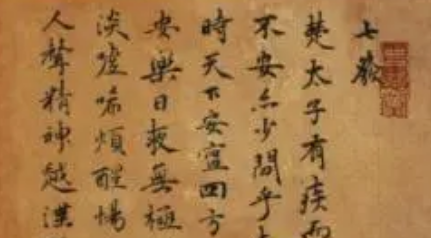 七發
楚太子有疾而
不安亦少間乎
時天下安寧四方
安樂日夜無極
淡噓唏煩酲惕
人聲精神越渫